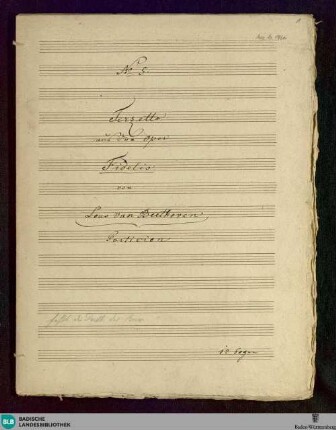 No 5.
Terzetto
aus der Oper
Fidelio
von
Louis van Beethoven
Partitur
BLB BADISCHE
LANDESBIBLIOTHEK
Baden-Württemberg